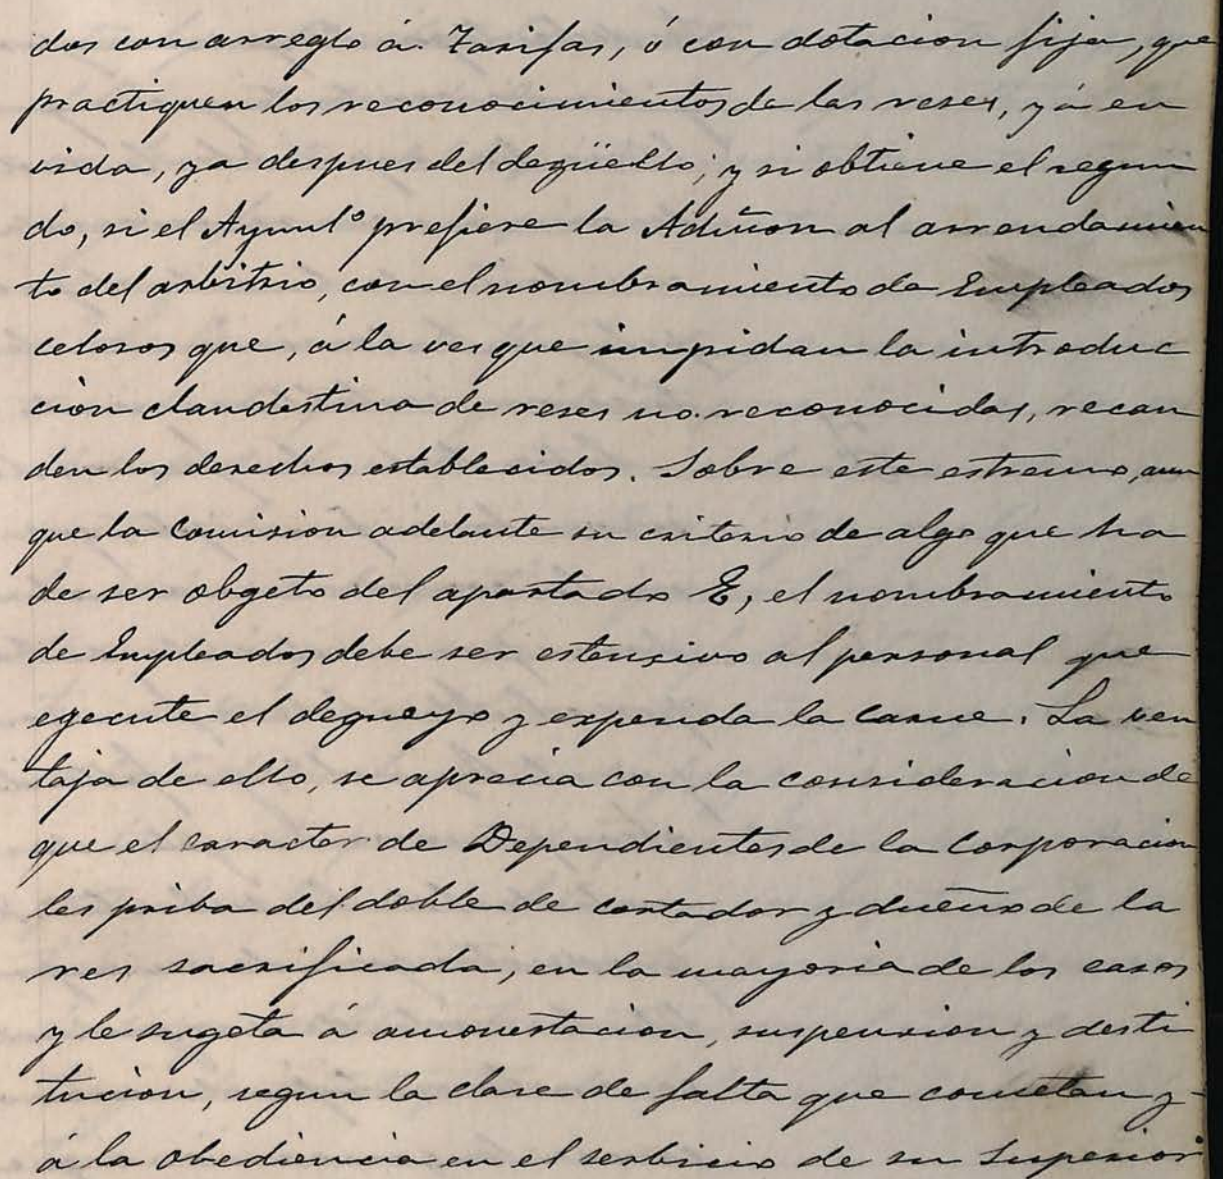 dos con arreglo á Tarifas, ó con dotacion fija, que
practiquen los reconocimientos de las reses, yá en
vida, ya despues del degüello; y si obtiene el segun
do, si el Ayunt.º prefiere la Admon al arrendamien
to del arbitrio, con el nombramiento de Empleados
celosos que, á la vez que impidan la introduc
cion clandestina de reses no reconocidas, recau
den los derechos establecidos. Sobre este estremo, aun
que la Comision adelante su criterio de algo que ha
de ser obgeto del apartado E, el nombramiento
de Empleados debe ser estensivo al personal que
egecute el degueyo y expenda la carne. La ven
taja de ello, se aprecia con la consideracion de
que el caracter de Dependientes de la Corporacion
les priba del doble de cortador y dueño de la
res sacrificada, en la mayoria de los casos
y le sugeta á amonestacion, suspension y desti
tucion, segun la clase de falta que cometan y
á la obediencia en el serbicio de su Superior